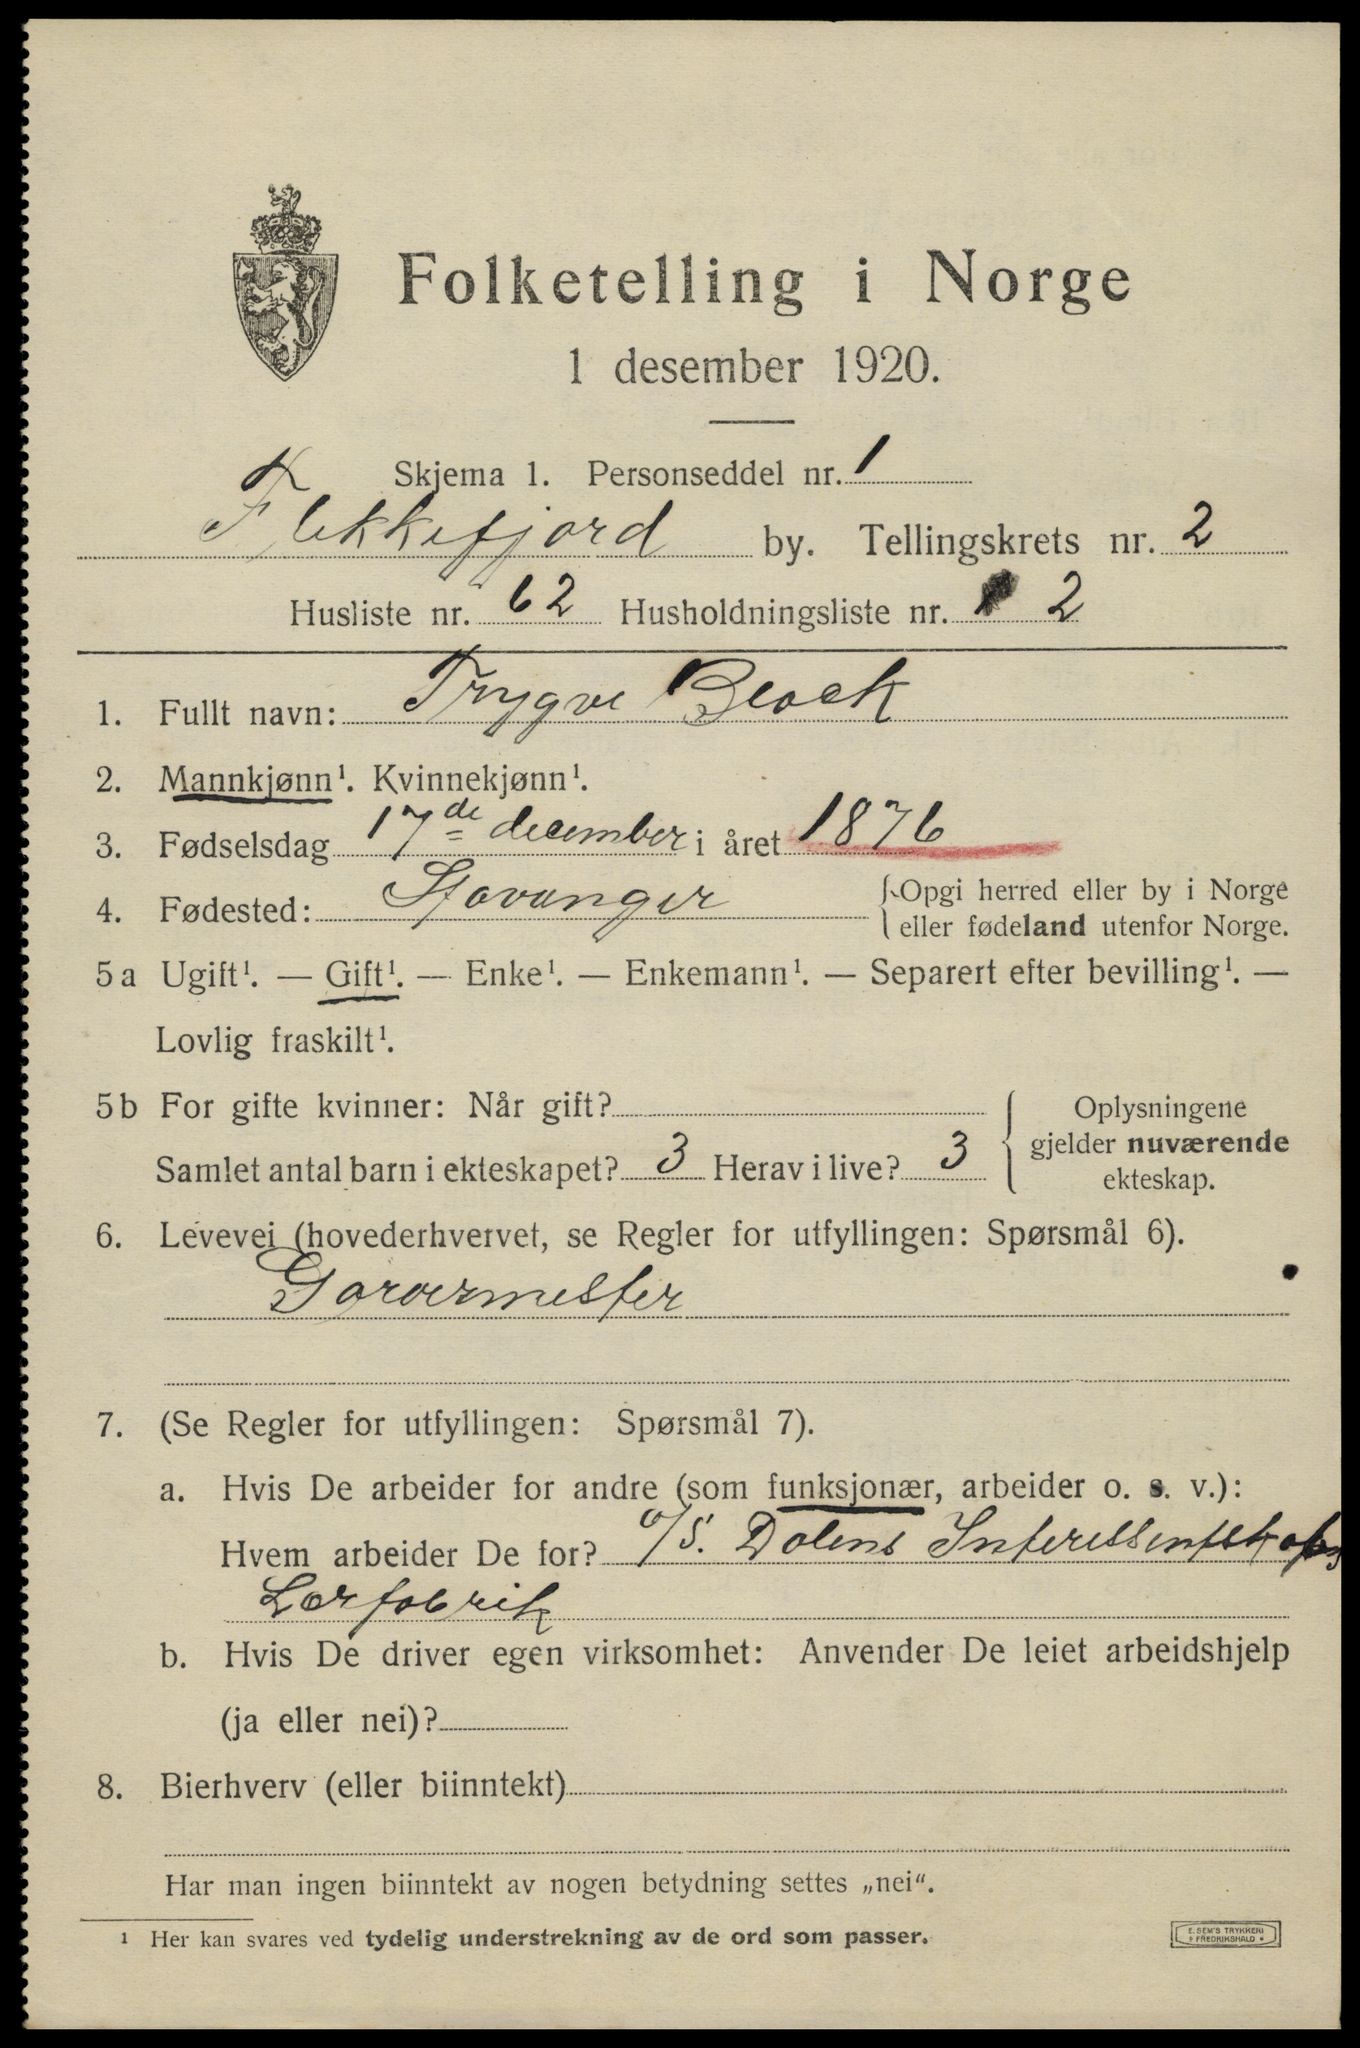 Folketelling i Norge
1 desember 1920.
Skjema 1. Personseddel nr. 1
Flekkefjord by. Tellingskrets nr. 2
Husliste nr. 62 Husholdningsliste nr. 2
1. Fullt navn: Trygve Block
2. Mannkjønn¹. Kvinnekjønn¹.
3. Fødselsdag 17de december i året 1876
4. Fødested: Stavanger {Opgi herred eller by i Norge
eller fødeland utenfor Norge.
5a Ugift¹. — Gift¹. — Enke¹. — Enkemann¹. — Separert efter bevilling¹. —
Lovlig fraskilt¹.
5b For gifte kvinner: Når gift?
Samlet antal barn i ekteskapet? 3 Herav i live? 3
Oplysningene
gjelder nuværende
ekteskap.
6. Levevei (hovederhvervet, se Regler for utfyllingen: Spørsmål 6).
Garvermester
7. (Se Regler for utfyllingen: Spørsmål 7).
a. Hvis De arbeider for andre (som funksjonær, arbeider o. s. v.):
Hvem arbeider De for? A/S. Dalens Interessentskaps
Lærfabrik
b. Hvis De driver egen virksomhet: Anvender De leiet arbeidshjelp
(ja eller nei)?
8. Bierhverv (eller biinntekt)
Har man ingen biinntekt av nogen betydning settes „nei“.
¹ Her kan svares ved tydelig understrekning av de ord som passer.
E. SEM'S TRYKKERI
FREDRIKSHALD